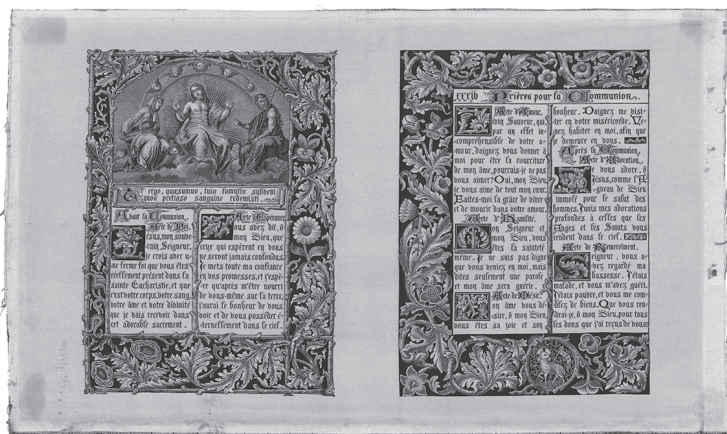 Te ergo, quæsumus, tuis famulis subveni
quos pretioso sanguine redemisti.
Avant la Communion.
Acte de Foi.
Jésus, mon souve-
rain Seigneur,
je crois avec u-
ne ferme foi que vous êtes
réellement présent dans la
sainte Eucharistie, et que
c'est votre corps, votre sang,
votre âme et votre divinité
que je vais recevoir dans
cet adorable sacrement.
Acte d'Espérance
Vous avez dit, ô
mon Dieu, que
ceux qui espèrent en vous
ne seront jamais confondus.
Je mets toute ma confiance
en vos promesses, et j'espè-
re qu'après m'être nourri
de vous-même sur la terre,
j'aurai le bonheur de vous
voir et de vous posséder é-
ternellement dans le ciel.
xxxiv Prières pour la Communion.
Acte d'Amour.
Divin Sauveur, qui
par un effet in-
compréhensible de votre a-
mour, daignez vous donner à
moi pour être la nourriture
de mon âme, pourrais-je ne pas
vous aimer? Oui, mon Dieu
je vous aime de tout mon cœur.
Faites-moi la grâce de vivre
et de mourir dans votre amour.
Acte d'Humilité.
Mon Seigneur et
mon Dieu, vous
êtes la sainteté
même. je ne suis pas digne
que vous veniez en moi, mais
dites seulement une parole,
et mon âme sera guérie.
Acte de Désir.
Mon âme vous dé-
sire, ô mon Dieu,
vous êtes sa joie et son
bonheur. Daignez me visi-
ter en votre miséricorde. Ve-
nez habiter en moi, afin que
je demeure en vous.
Après la Communion.
Acte d'Adoration.
Je vous adore, ô
Jésus, comme l'A-
gneau de Dieu
immolé pour le salut des
hommes. J'unis mes adorations
profondes à celles que les
Anges et les Saints vous
rendent dans le ciel.
Acte de Remerciment.
Seigneur, vous a-
vez regardé ma
bassesse. J'étais
malade, et vous m'avez guéri.
J'étais pauvre, et vous me com-
blez de biens. Que vous ren-
drai-je, ô mon Dieu, pour tous
les dons que j'ai reçus de vous?